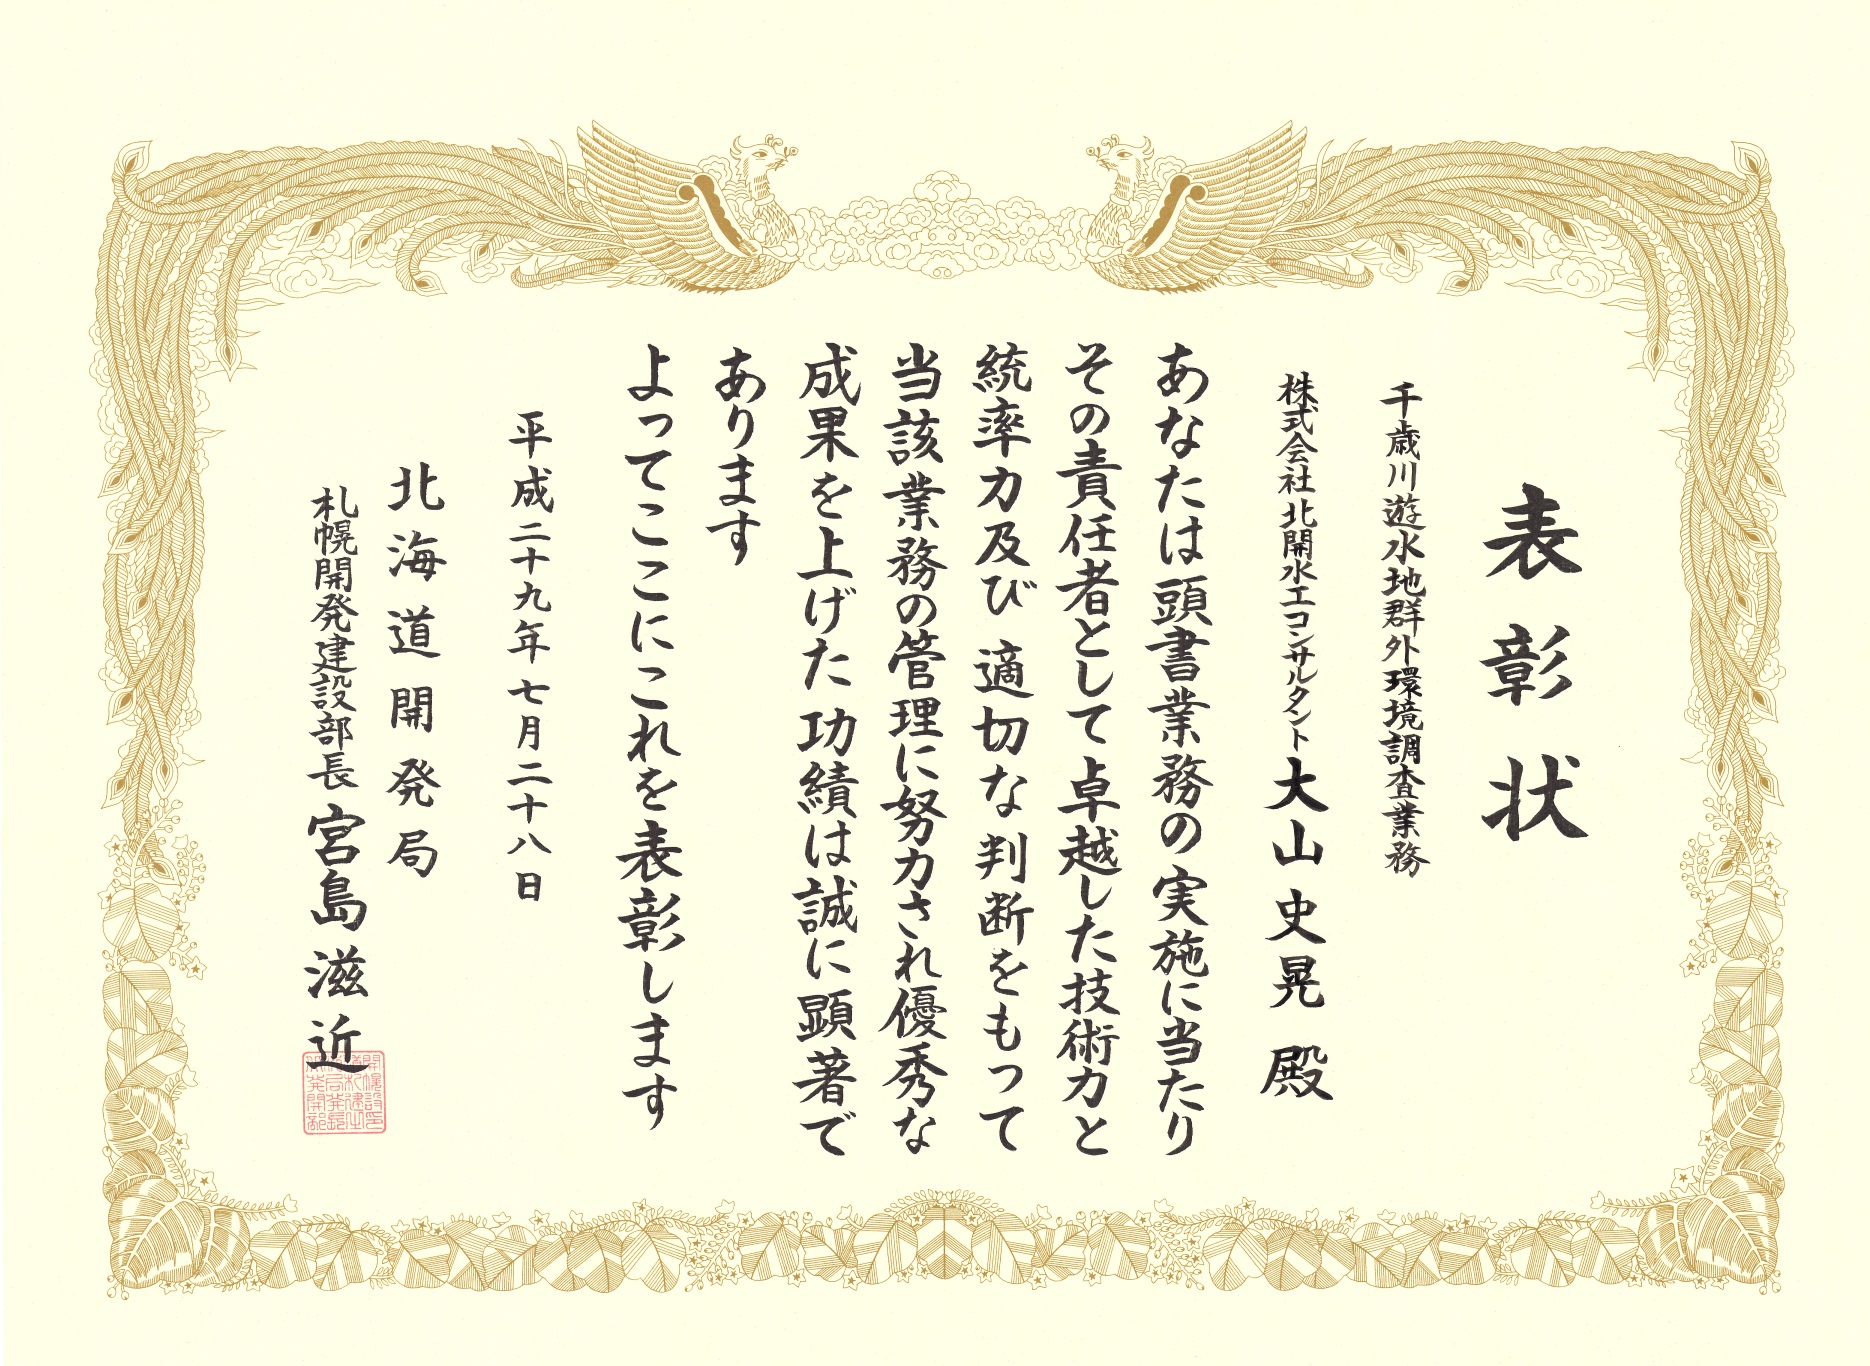 表彰状
千歳川遊水地群外環境調査業務
株式会社北開水工コンサルタント 大山史晃 殿
あなたは頭書業務の実施に当たり
その責任者として卓越した技術力と
統率力及び適切な判断をもって
当該業務の管理に努力され優秀な
成果を上げた功績は誠に顕著で
あります
よってここにこれを表彰します
平成二十九年七月二十八日
北海道開発局
札幌開発建設部長 宮島滋近